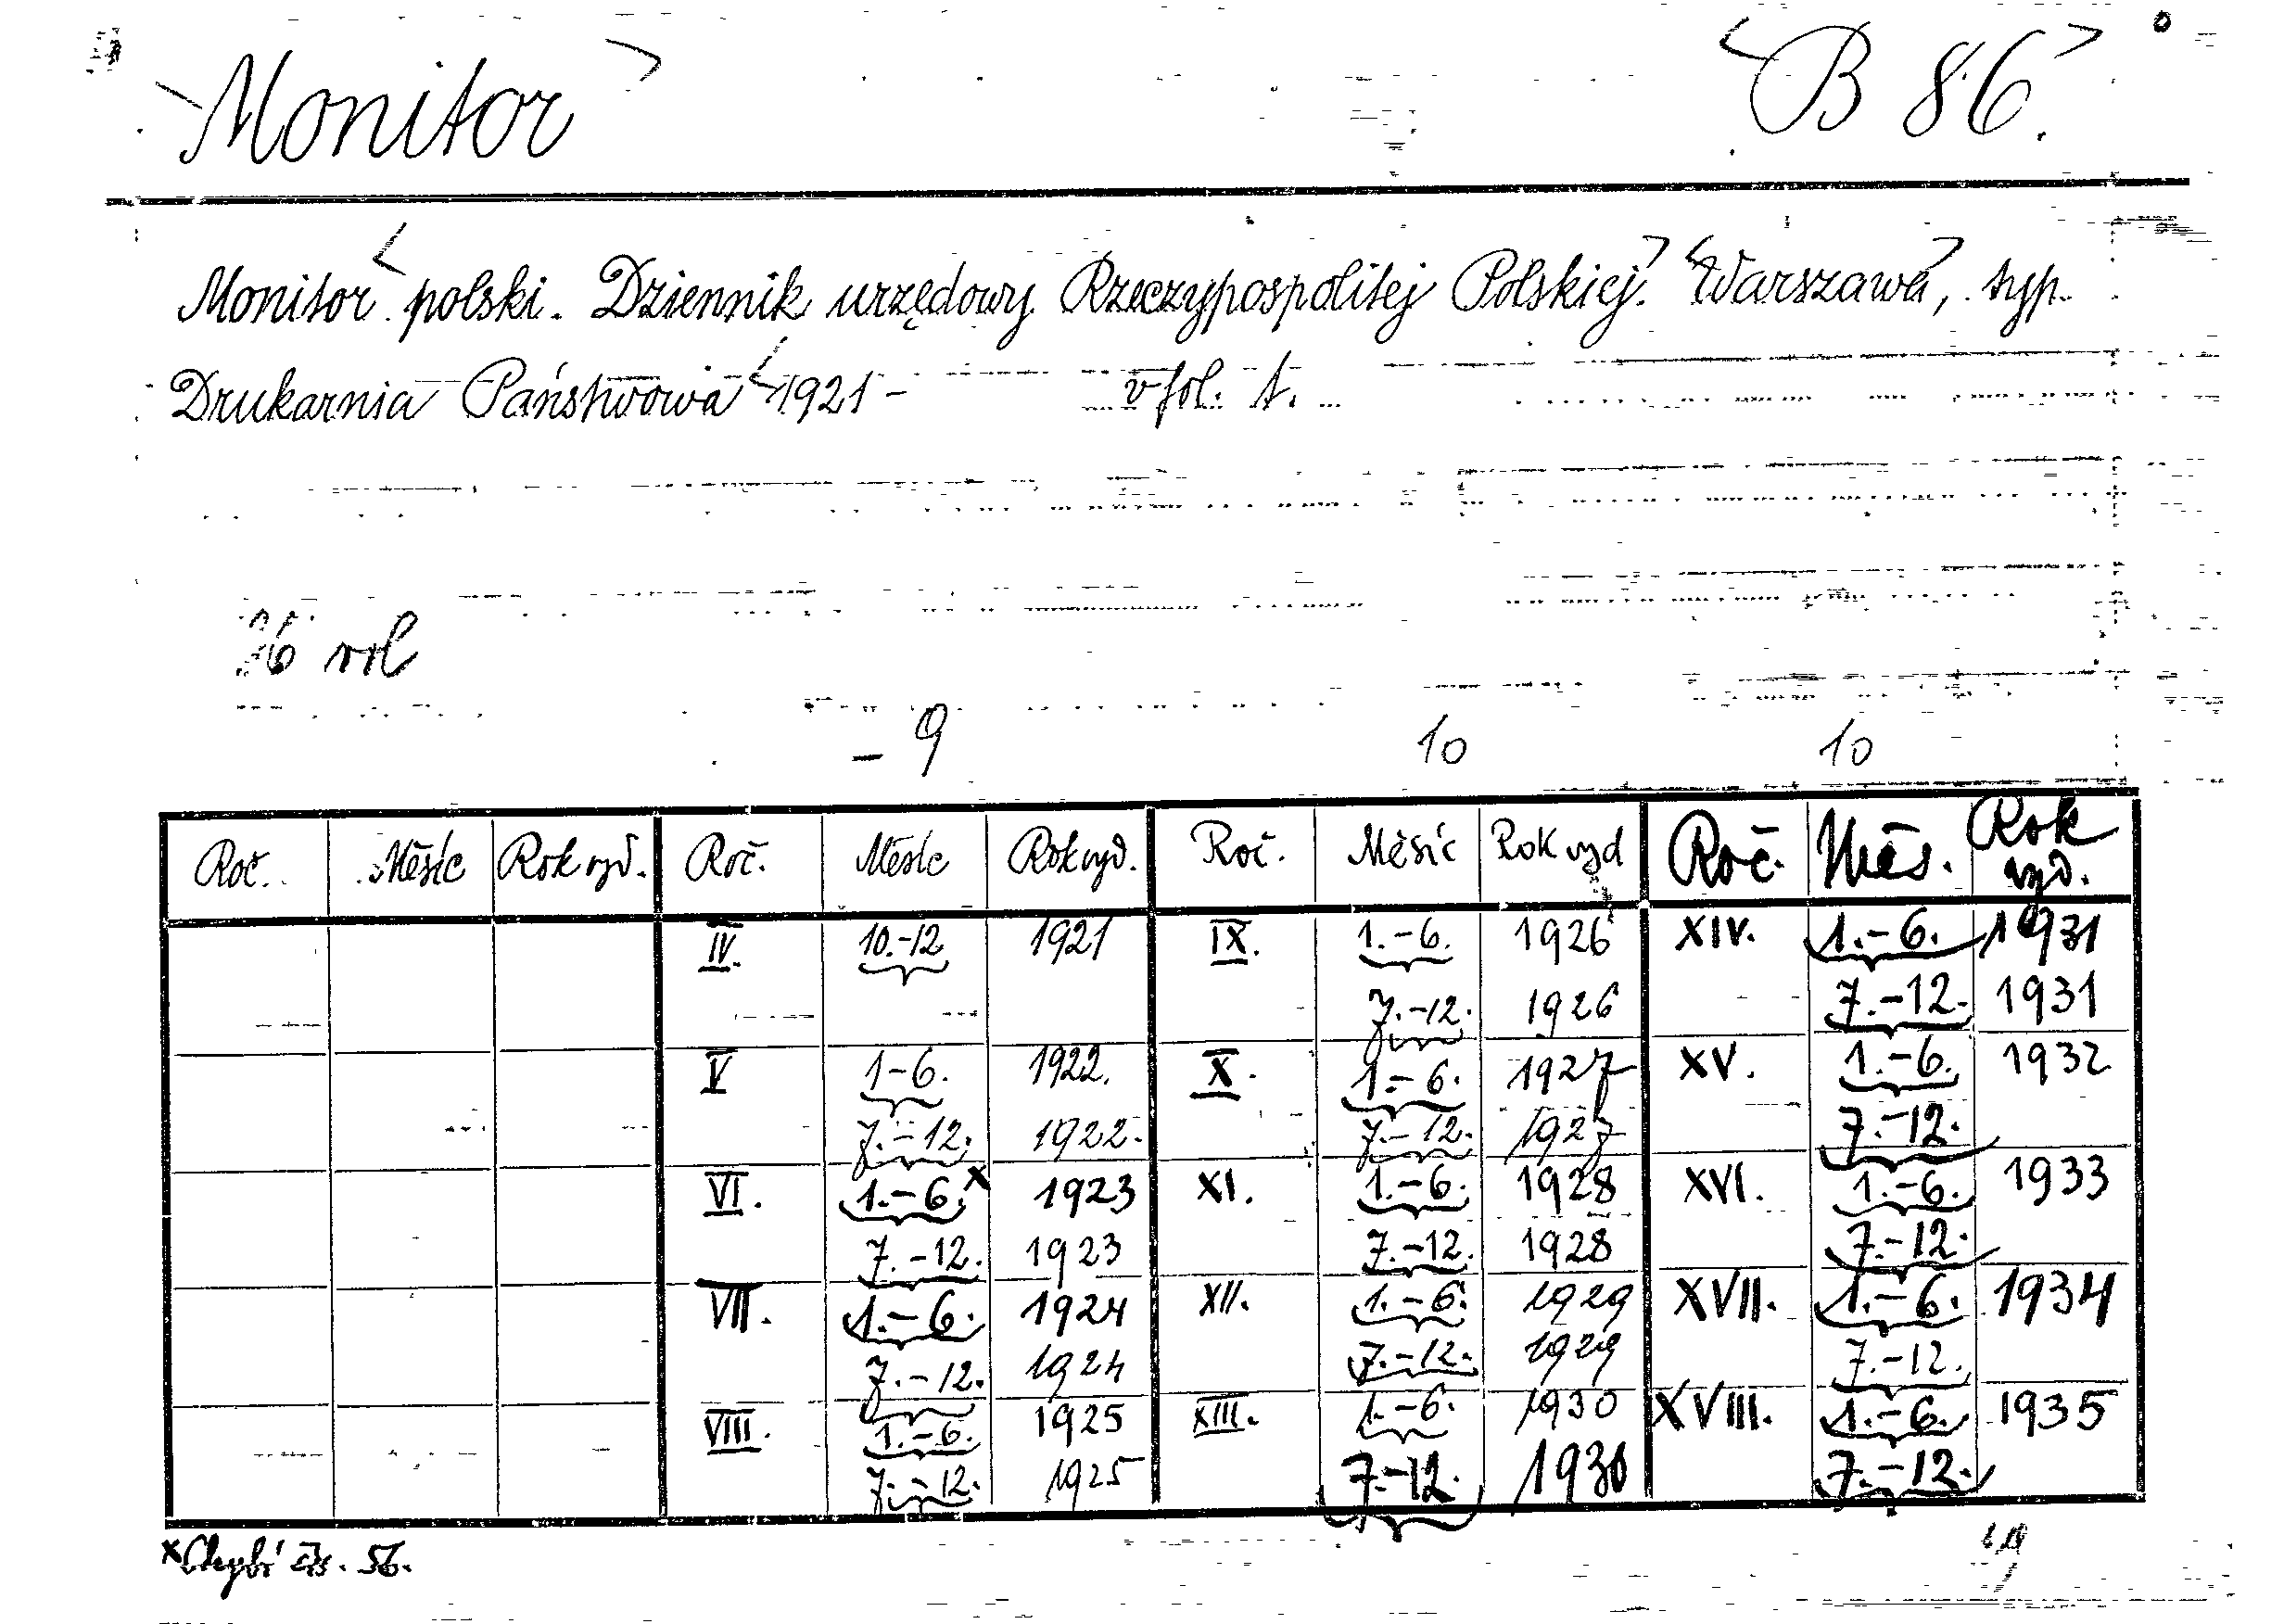 Monitor B 86.
Monitor polski. Dziennik urzędowy Rzeczypospolitej Polskiej. Warszawa, typ.
Drukarnia Państwowa 1921 - v fol. t.
vol
- 9 10 10
Roč. Měsíc Rok vyd. Roč. Měsíc Rok vyd. Roč. Měsíc Rok vyd Roč. Měs. Rok vyd.
IV. 10.-12 1921 IX. 1.-6. 1926 XIV. 1.-6. 1931
7.-12. 1926 7.-12. 1931
V 1-6. 1922. X. 1.-6. 1927 XV. 1.-6. 1932
7.-12. 1922. 7.-12. 1927 7.-12.
VI. 1.-6. x 1923 XI. 1.-6. 1928 XVI. 1.-6. 1933
7.-12. 1923 7.-12. 1928 7.-12.
VII. 1.-6. 1924 XII. 1.-6. 1929 XVII. 1.-6. 1934
7.-12. 1924 7.-12. 1929 7.-12.
VIII. 1.-6. 1925 XIII. 1.-6. 1930 XVIII. 1.-6. 1935
7.-12. 1925 7.-12. 1930 7.-12.
x Chybí čís. 56.